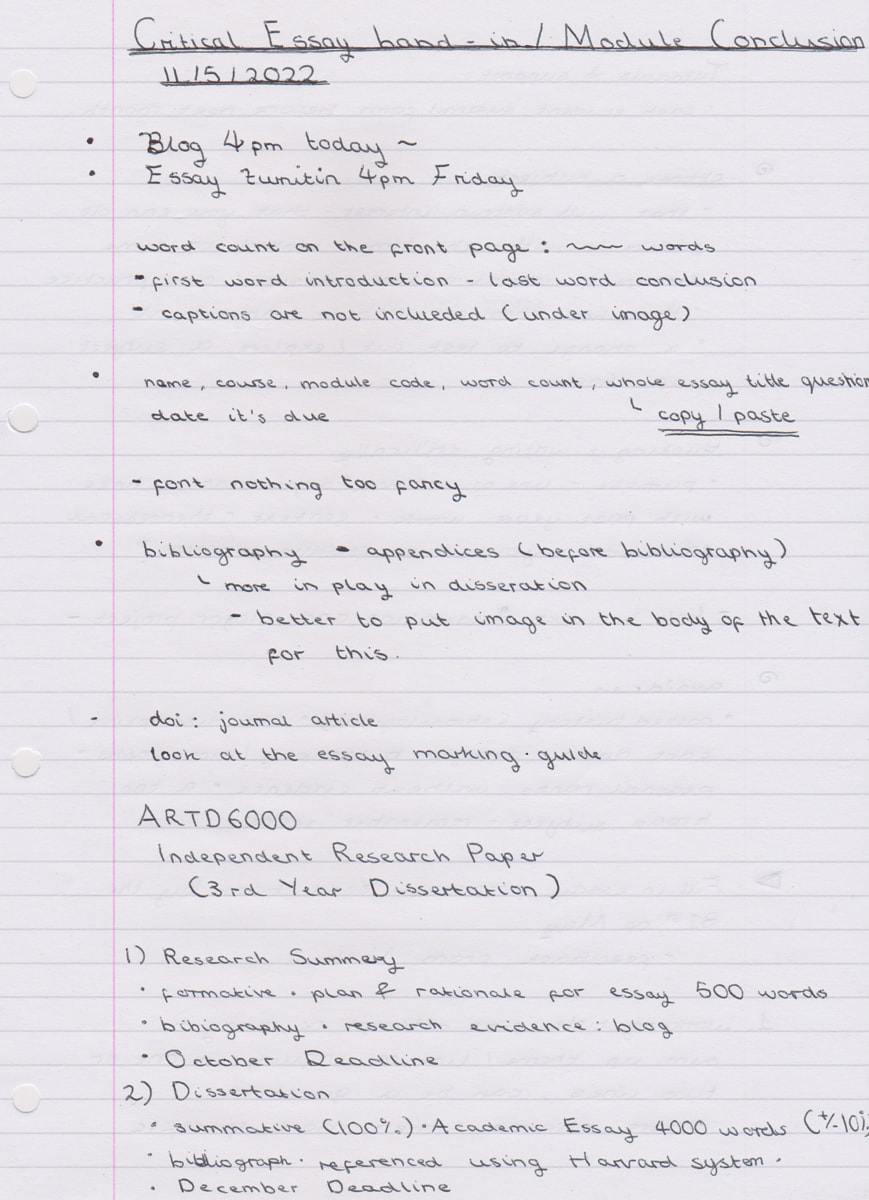 Critical Essay hand-in / Module Conclusion
11/5/2022
• Blog 4pm today ~
• Essay turnitin 4pm Friday
word count on the front page : ~~ words
- first word introduction - last word conclusion
- captions are not inclueded (under image)
• name, course, module code, word count, whole essay title question
date it's due
└ copy / paste
- font nothing too fancy
• bibliography - appendices (before bibliography)
└ more in play in disseration
- better to put image in the body of the text
for this.
- doi : journal article
look at the essay marking · guide
ARTD6000
Independent Research Paper
(3rd Year Dissertation)
1) Research Summery
· formative · plan & rationale for essay 500 words
· bibiography · research evidence : blog
· October Deadline
2) Dissertation
· summative (100%) · Academic Essay 4000 words (+/-10%
· bibliograph · referenced using Harvard system ·
· December Deadline